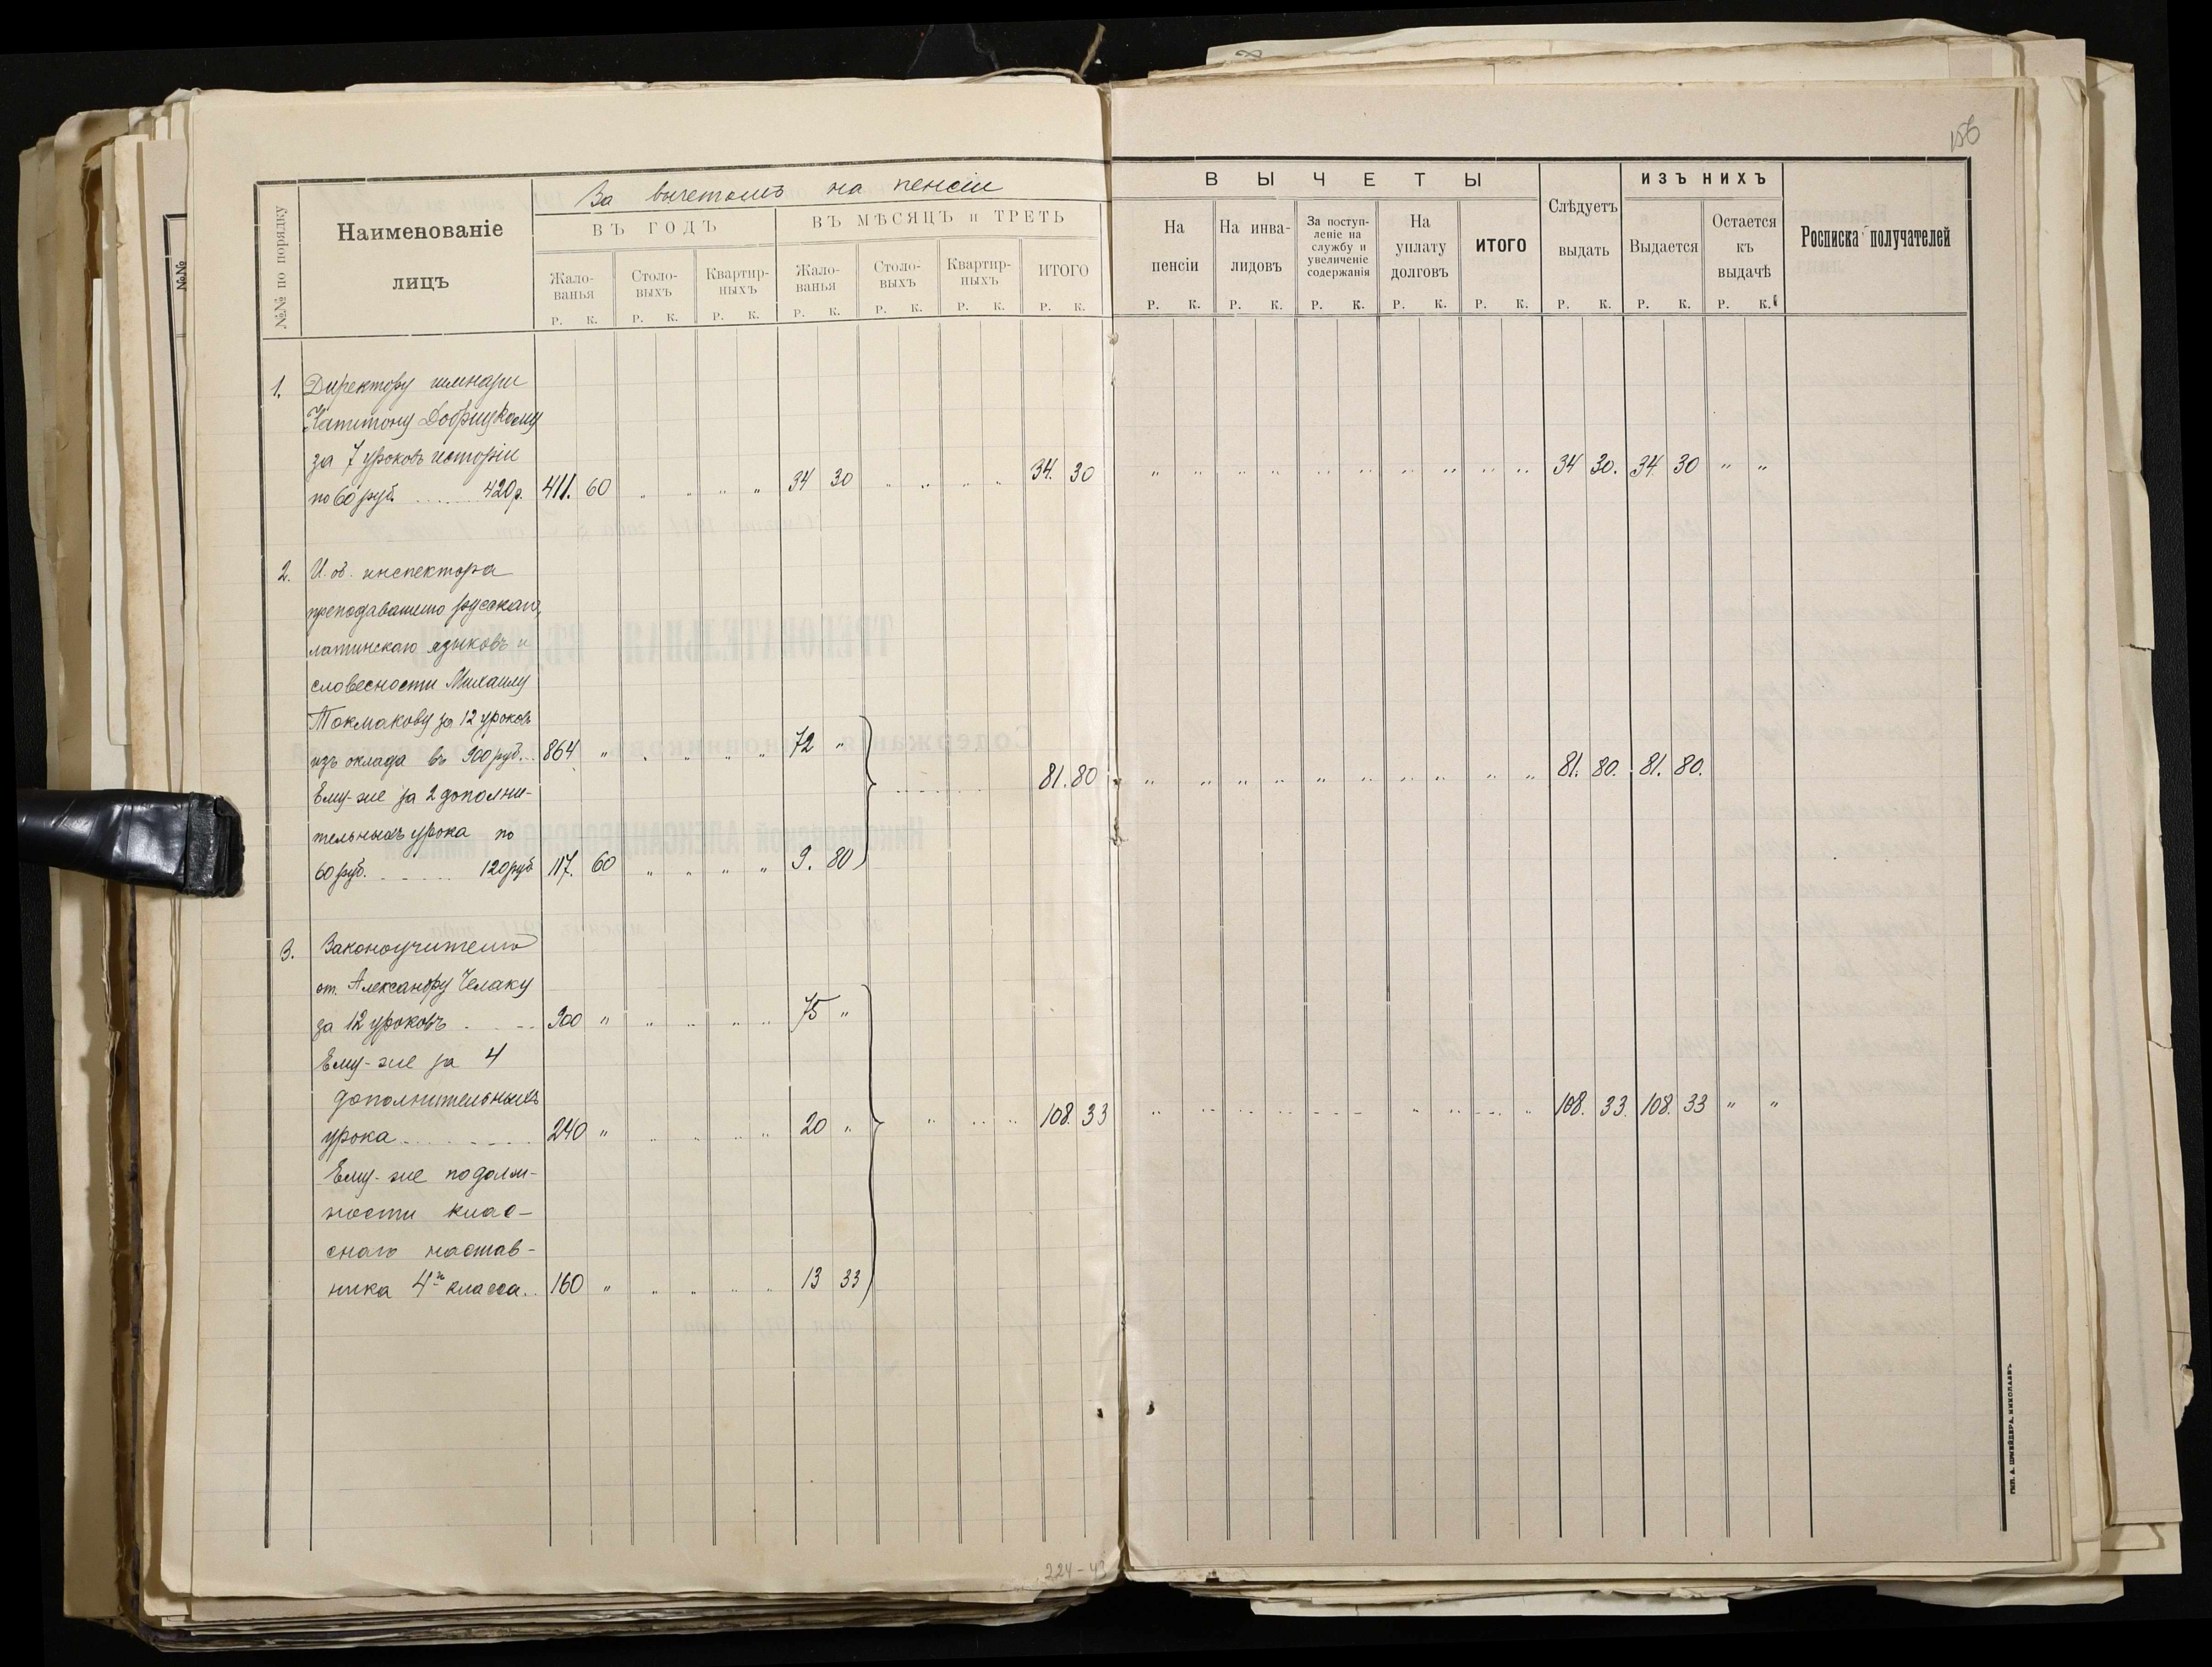 156
№№
№№ по порядку
Наименованіе
лицъ
За вычетомъ на пенсіи
ВЪ ГОДЪ
ВЪ МѢСЯЦЪ и ТРЕТЬ
Жало-
ванья
Столо-
выхъ
Квартир-
ныхъ
Жало-
ванья
Столо-
выхъ
Квартир-
ныхъ
ИТОГО
Р. К. Р. К. Р. К. Р. К. Р. К. Р. К. Р. К.
ВЫЧЕТЫ
На
пенсіи
На инва-
лидовъ
За поступ-
леніе на
службу и
увеличеніе
содержанія
На
уплату
долговъ
ИТОГО
Слѣдуетъ
выдать
ИЗЪ НИХЪ
Выдается
Остается
къ
выдачѣ
Росписка получателей
Р. К. Р. К. Р. К. Р. К. Р. К. Р. К. Р. К. Р. К.
1. Директору
Капитону Добрицкому
за 7 уроковъ исторіи
по 60 руб. ...... 420 р. 411. 60 " " " " 34 30 " " " " 34. 30 " " " " " " " " " " 34 30. 34 30 " "
2. И. об. инспектора
преподавателю русскаго,
латинскаго языковъ и
словесности Михаилу
Токмакову за 12 уроковъ
изъ оклада въ 900 руб... 864 " " " " " 72 "
81. 80 " " " " " " " " " " 81. 80. 81. 80.
Ему-же за 2 дополни-
тельныхъ урока по
60 руб. ...... 120 руб 117. 60 " " " " 9. 80
3. Законоучителю
от. Александру Челаку
за 12 уроковъ . . -- 900 " " " " " 75 "
Ему-же за 4
дополнительныхъ
урока ........ 240 " " " " " 20 " " " " 108. 33 " " " " " " " " 108. 33. 108. 33 " "
Ему-же по долж-
ности клас-
снаго настав-
ника 4го класса.. 160 " " " " " 13 33
224-43
ТИП. А. ШНЕЙДЕРА, НИКОЛАЕВЪ